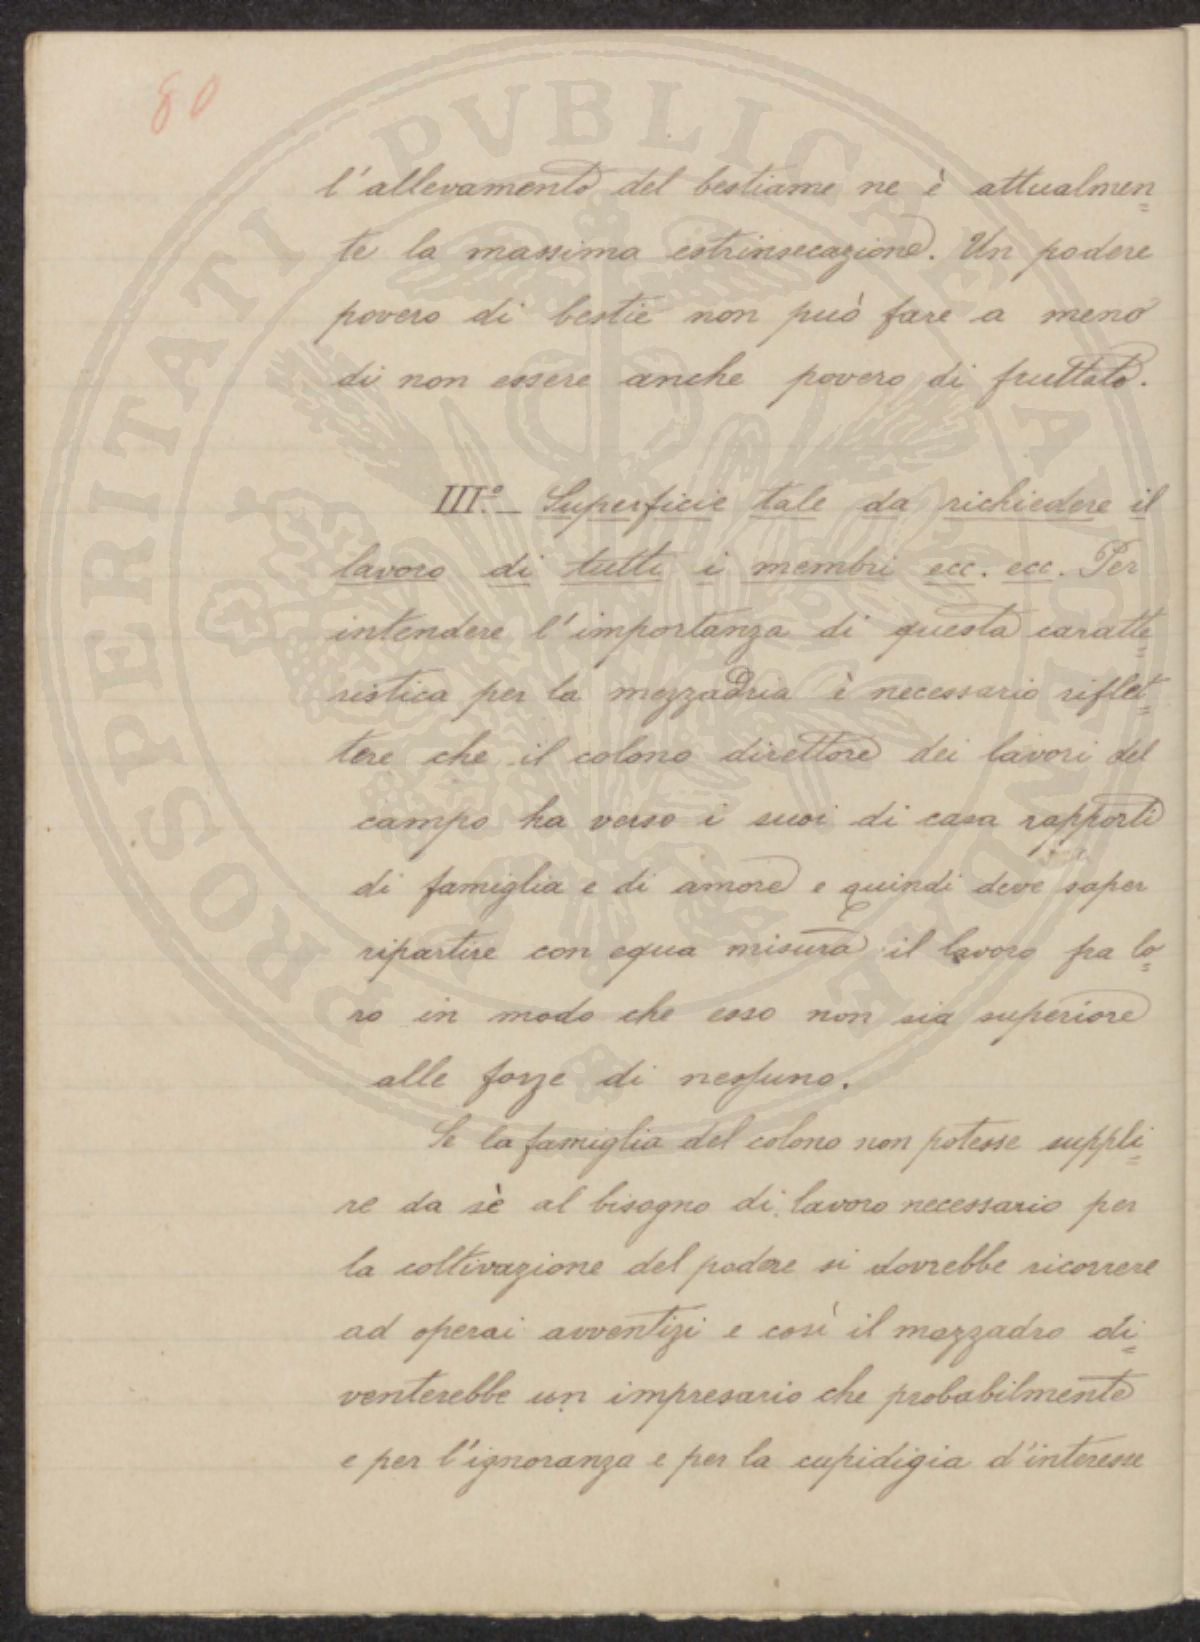 80
l'allevamento del bestiame ne è attualmen=
te la massima estrinsecazione. Un podere
povero di bestie non può fare a meno
di non essere anche povero di fruttato.
III.º – Superficie tale da richiedere il
lavoro di tutti i membri ecc. ecc. Per
intendere l'importanza di questa caratte=
ristica per la mezzadria è necessario riflet=
tere che il colono direttore dei lavori del
campo ha verso i suoi di casa rapporti
di famiglia e di amore e quindi deve saper
ripartire con equa misura il lavoro fra lo=
ro in modo che esso non sia superiore
alle forze di nessuno.
Se la famiglia del colono non potesse suppli=
re da sè al bisogno di lavoro necessario per
la coltivazione del podere si dovrebbe ricorrere
ad operai avventizi e così il mezzadro di=
venterebbe un impresario che probabilmente
e per l'ignoranza e per la cupidigia d'interesse
PROSPERITATI PVBLICAE AVGENDAE